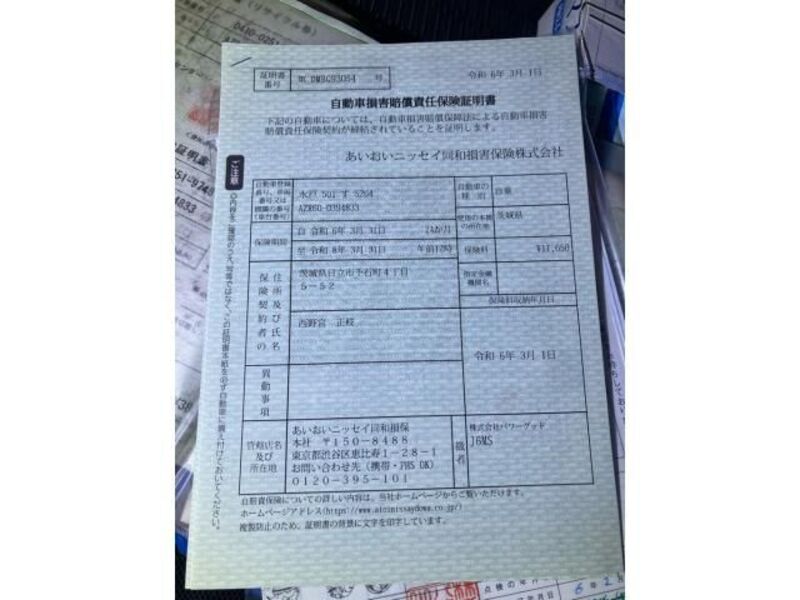 (リサイクル券)
0410-0251
証明書番号 号
令和 6年 3月 1日
自動車損害賠償責任保険証明書
下記の自動車については、自動車損害賠償保障法による自動車損害
賠償責任保険契約が締結されていることを証明します。
あいおいニッセイ同和損害保険株式会社
ご注意
◎内容をご確認のうえ、写等ではなく、この証明書本紙を必ず自動車に備え付けておいてください。
自動車登録番号、車両番号又は標識の番号(車台番号)
水戸 501 す 5264
AZR60-0394833
自動車の種別
自乗
使用の本拠の所在地
茨城県
保険期間
自 令和 6年 3月 31日 24か月
至 令和 8年 3月 31日 午前12時
保険料
¥17,650
指定金融機関名
保険料収納年月日
令和 6年 3月 1日
保険契約者の住所及び氏名
茨城県日立市
4丁目
5-52
西野宮 正枝
異動事項
管轄店名及び所在地
あいおいニッセイ同和損保
本社 〒150-8488
東京都渋谷区恵比寿1-28-1
お問い合わせ先(携帯・PHS OK)
0120-395-101
株式会社パワーグッド
J6MS
自賠責保険についての詳しい内容は、当社ホームページからご覧いただけます。
ホームページアドレス(https://www.aioinissaydowa.co.jp/)
複製防止のため、証明書の背景に文字を印字しています。
点検の年月